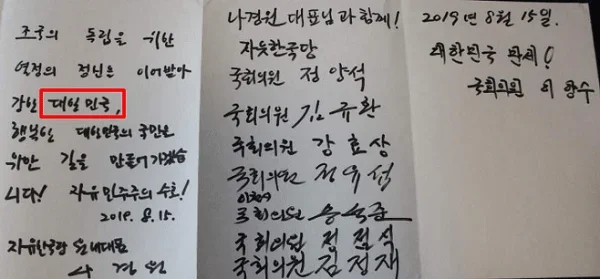 조국의 독립을 위한
열정의 정신을 이어받아
강한 대일민국,
행복한 대한민국의 국민을
위한 길을 만들어가겠습
니다! 자유민주주의 수호!
2019. 8. 15.
자유한국당 원내대표
나 경 원
나경원 대표님과 함께!
자유한국당
국회의원 정양석
국회의원 김규환
국회의원 강효상
국회의원 정유섭
이천
국회의원 송석준
국회의원 정점식
국회의원 김정재
2019년 8월 15일.
대한민국 만세!
국회의원 이양수